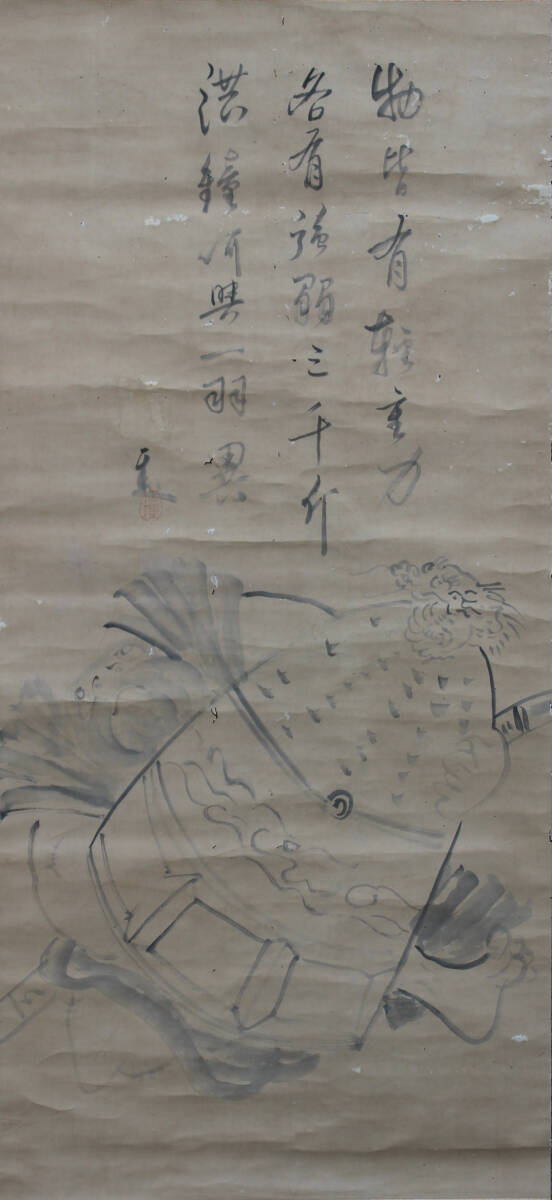 物皆有輕重力
各有強弱三千斤
洪鐘何與一羽異